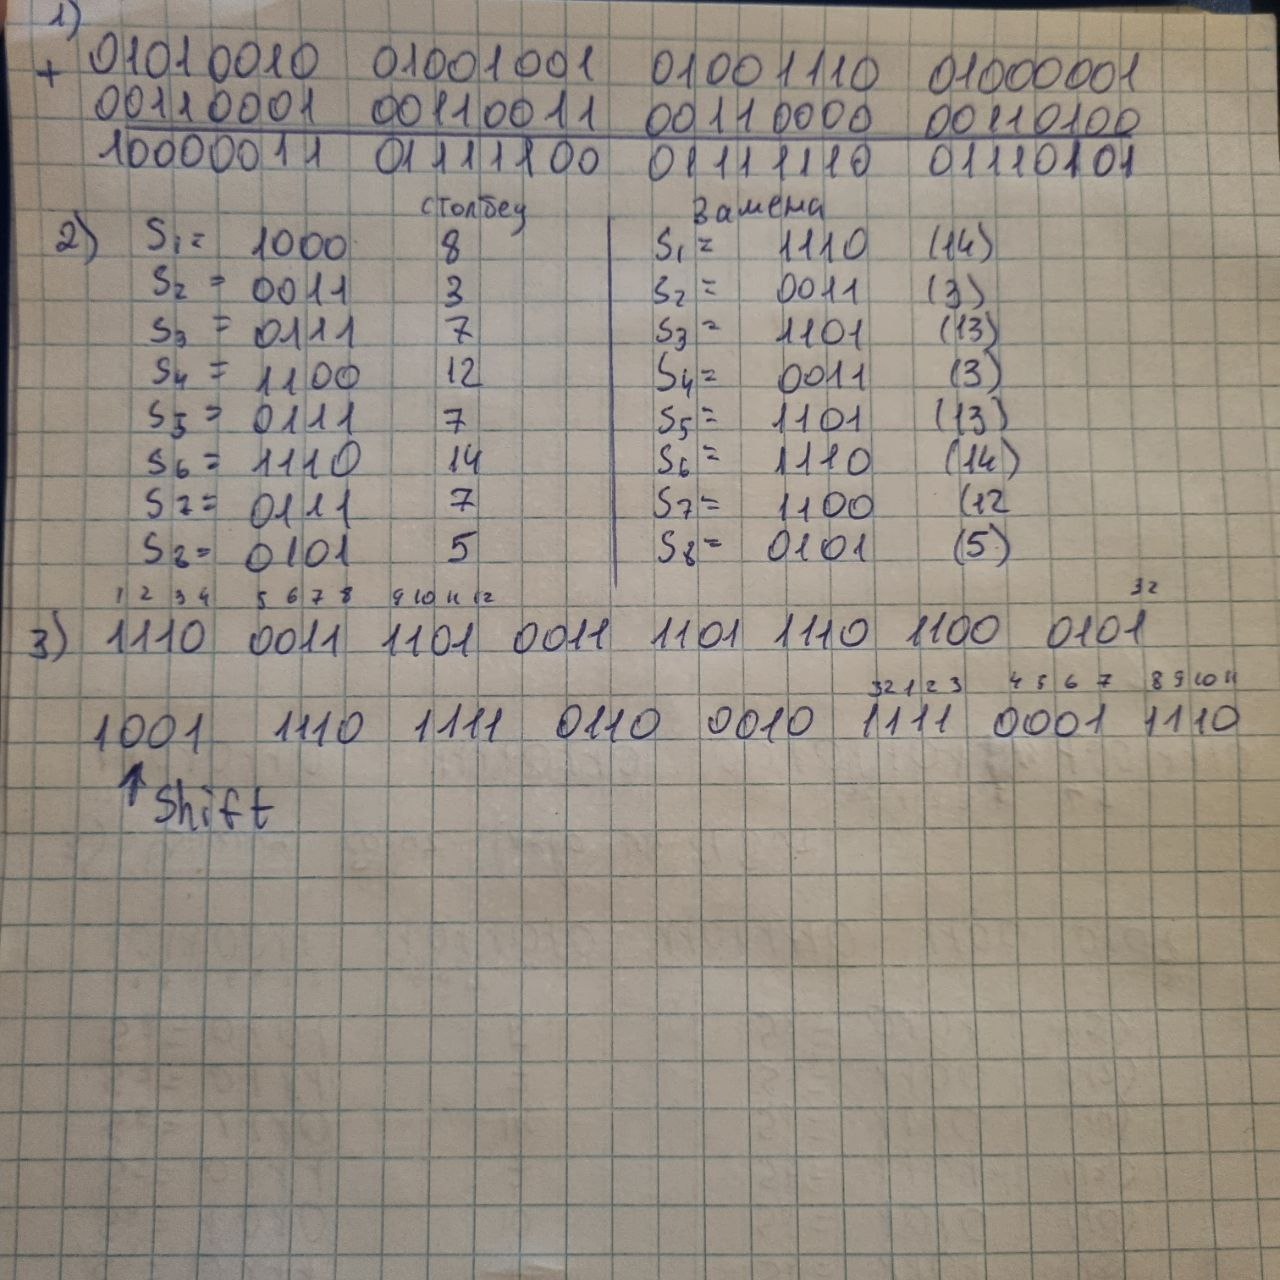 1)
+ 01010010 01001001 01001110 01000001
00110001 00110011 00110000 00110100
10000011 01111100 01111110 01110101
столбец замена
2) S1= 1000 8 S1= 1110 (14)
S2= 0011 3 S2= 0011 (3)
S3= 0111 7 S3= 1101 (13)
S4= 1100 12 S4= 0011 (3)
S5= 0111 7 S5= 1101 (13)
S6= 1110 14 S6= 1110 (14)
S7= 0111 7 S7= 1100 (12
S8= 0101 5 S8= 0101 (5)
1 2 3 4 5 6 7 8 9 10 11 12 32
3) 1110 0011 1101 0011 1101 1110 1100 0101
32 1 2 3 4 5 6 7 8 9 10 11
1001 1110 1111 0110 0010 1111 0001 1110
↑ Shift